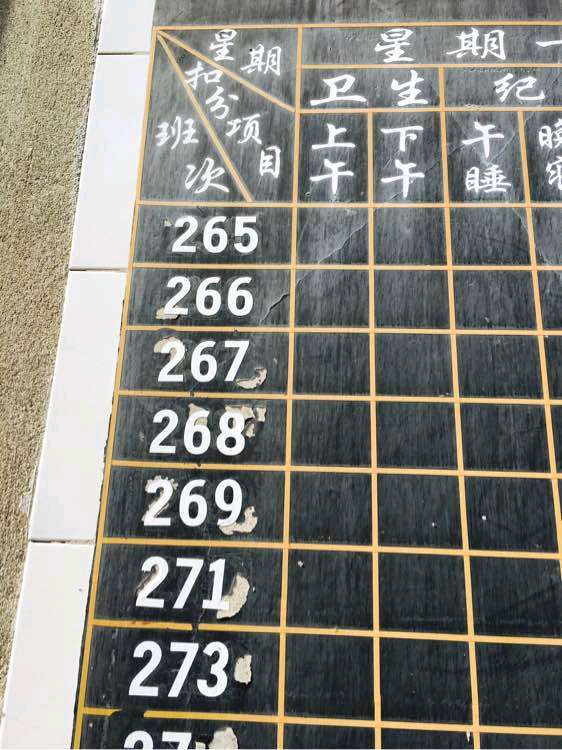 星期
扣分项目
班次
星期一
卫生
纪
上午
下午
午睡
晚
265
266
267
268
269
271
273